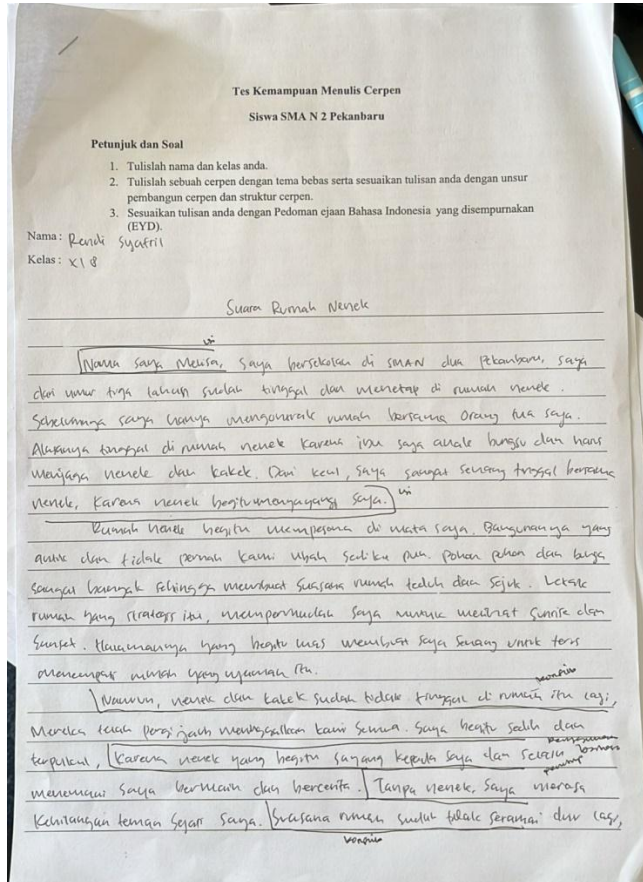 Tes Kemampuan Menulis Cerpen
Siswa SMA N 2 Pekanbaru
Petunjuk dan Soal
1. Tulislah nama dan kelas anda.
2. Tulislah sebuah cerpen dengan tema bebas serta sesuaikan tulisan anda dengan unsur
pembangun cerpen dan struktur cerpen.
3. Sesuaikan tulisan anda dengan Pedoman ejaan Bahasa Indonesia yang disempurnakan
(EYD).
Nama : Rendi Syafril
Kelas : XI 8
Suara Rumah Nenek
Nama saya Melisa, saya bersekolah di SMAN dua Pekanbaru, saya
dari umur tiga tahun sudah tinggal dan menetap di rumah nenek.
Sebelumnya saya hanya mengontrak rumah bersama orang tua saya.
Alasannya tinggal di rumah nenek karena ibu saya anak bungsu dan harus
menjaga nenek dan kakek. Dari kecil, saya sangat senang tinggal bersama
nenek, karena nenek begitu menyayangi saya.
Rumah nenek begitu mempesona di mata saya. Bangunannya yang
antik dan tidak pernah kami ubah sedikit pun. Pohon pohon dan bunga
sangat banyak sehingga membuat suasana rumah teduh dan sejuk. Letak
rumah yang strategis itu, mempermudah saya untuk melihat sunrise dan
sunset. Halamannya yang begitu luas membuat saya senang untuk terus
menempati rumah yang nyaman itu.
konflik
Namun, nenek dan kakek sudah tidak tinggal di rumah itu lagi,
Mereka telah pergi jauh meninggalkan kami semua. Saya begitu sedih dan
terpukul, karena nenek yang begitu sayang kepada saya dan selalu
menemani saya bermain dan bercerita. Tanpa nenek, saya merasa
kehilangan teman sejati saya. Suasana rumah sudah tidak seramai dulu lagi,
konflik